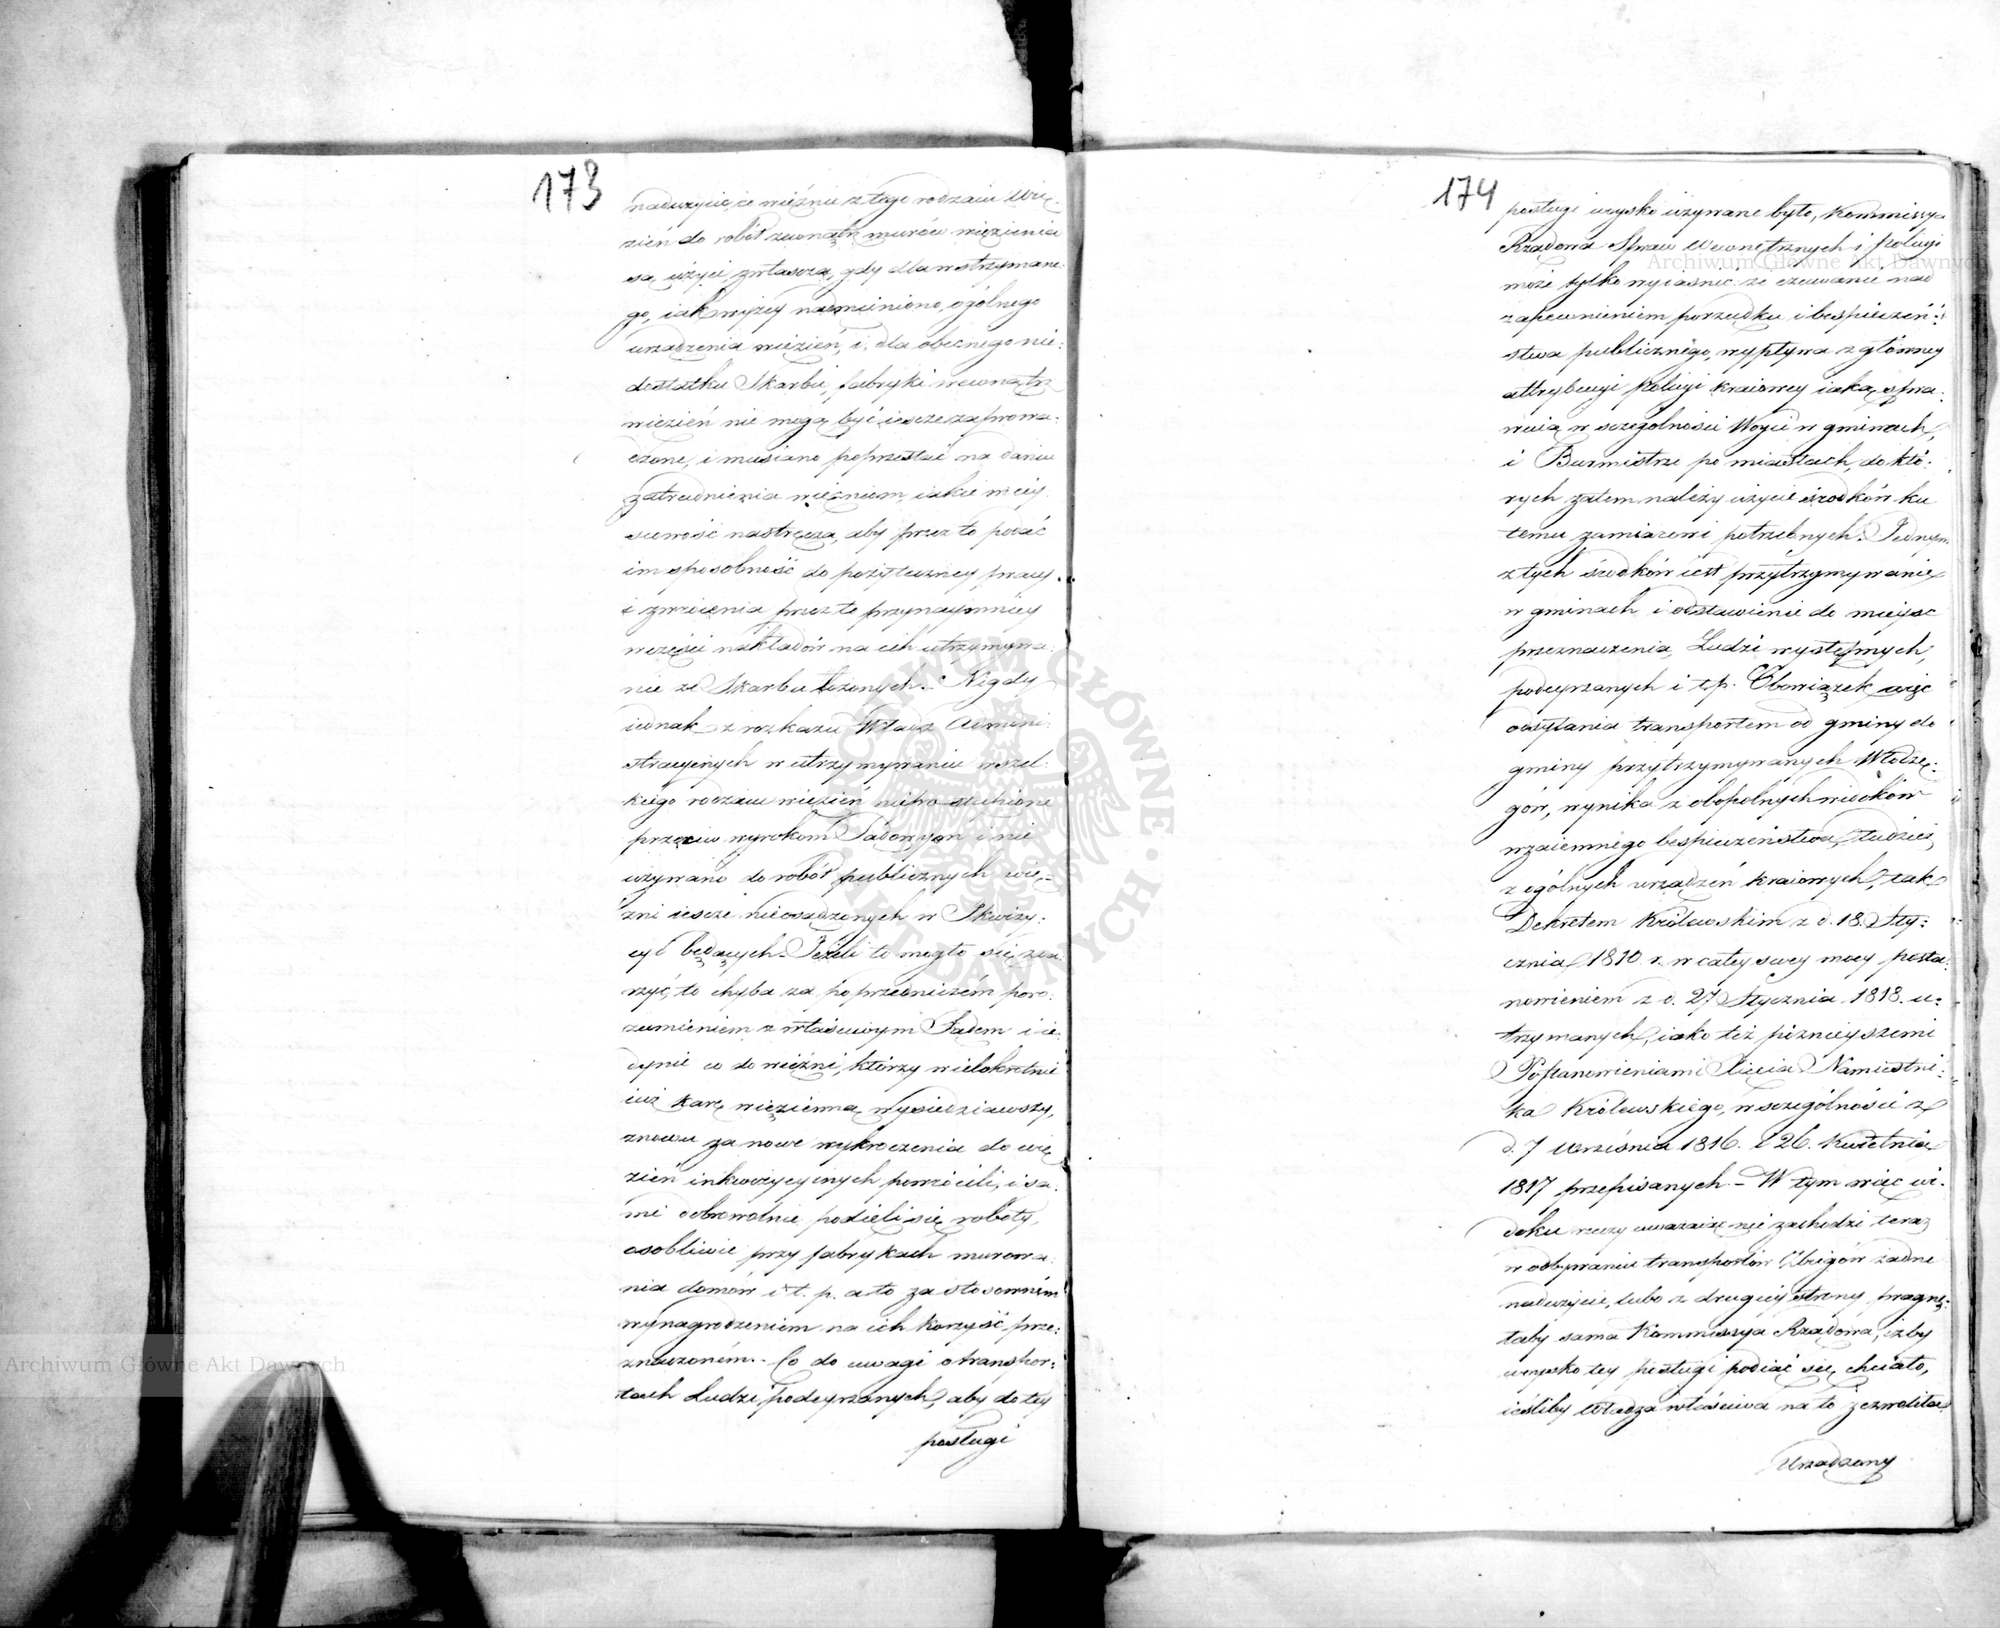 173
nadużycie, że więźniu z tego rodzaiu Wię-
zień do robót zewnątrz murów więzienia
są użyci, zwłaszcza, gdy dla wstrzymane-
go, iak wyżey nadmieniono, ogólnego
urządzenia więzień, i dla obecnego nie:
dostatku Skarbu, fabryki wewnątrz
więzień nie mogą być ieszcze zaprowa:
dzone, i musiano poprzestać na daniu
zatrudnienia więźniom, iakie miey
scowość nastręcza, aby przez to podać
im sposobność do pożyteczney pracy,
i zwrócenia przez to przynaymniey
w części nakładów na ich utrzymywa:
nie ze Skarbu łożonych. Nigdy
iednak z rozkazu Władz Admini:
stracyinych w utrzymywaniu wszel:
kiego rodzaiu więzień nie
przeciw wyrokom Sądowym i nie
używano do robót publicznych wię=
źni ieszcze nieosądzonych w Inkwizy:
cyi będących. Jeżeli to mogło się zda:
rzyć, to chyba za poprzedniczém poro:
zumieniem z właściwym Sądem i ie:
dynie co do więźni, którzy wielokrotnie
iuż karę więzienną wysiedziawszy,
znowu za nowe wykroczenia do wię
zień inkwizycyinych powrócili, i sa:
mi dobrowolnie podieli się roboty,
osobliwie przy fabrykach murowa:
nia domów i t. p. a to za stosowném
wynagrodzeniem na ich korzyść prze:
znaczoném. - Co do uwagi o transpor:
tach Ludzi podeyrzanych, aby do tey
posługi
174
posługi woysko używane było, Kommissya
Rządowa Spraw Wewnętrznych i Policyi
może tylko wyiaśnić że czuwanie nad
zapewnieniem porządku i bespieczeń:
stwa publicznego, wypływa z główney
attrybucyi Policyi kraiowey iaką spra:
wuią w szczególności Woyci w gminach,
i Burmistrze po miastach, do któ:
rych zatem należy użycie środków ku
temu zamiarowi potrzebnych. Jednym
z tych środków iest przytrzymywanie
w gminach i odstawienie do mieysc
przeznaczenia, Ludzi występnych,
podeyrzanych i t. p. Obowiązek więc
odsyłania transportem od gminy do
gminy przytrzymywanych Włóczę:
gów, wynika z obopólnych widoków
wzaiemnego bespieczeństwa, tudzież,
z ogólnych urządzeń kraiowych, tak
Dekretem Królewskim z d. 18. Sty:
cznia 1810 r. w całey swey mocy posta:
nowieniem z d. 27 Stycznia 1818. u:
trzymanych, iako też późnieyszemi
Postanowieniami Xięcia Namiestni:
ka Królewskiego, w szczególności z
d. 7 Września 1816. i 26. Kwietnia
1817 przepisanych. - W tym więc wi:
doku rzeczy uważaiąc nie zachodzi teraz
w odbywaniu transportów Zbiegów żadne
nadużycie, lubo z drugiey strony pragnę:
łaby sama Kommissya Rządowa, iżby
woysko tey posługi podiąć się chciało,
ieśliby Władza właściwa na to zezwoliła
Urządzony
Archiwum Główne Akt Dawnych
Archiwum Główne Akt Dawnych
ARCHIWUM GŁÓWNE AKT DAWNYCH